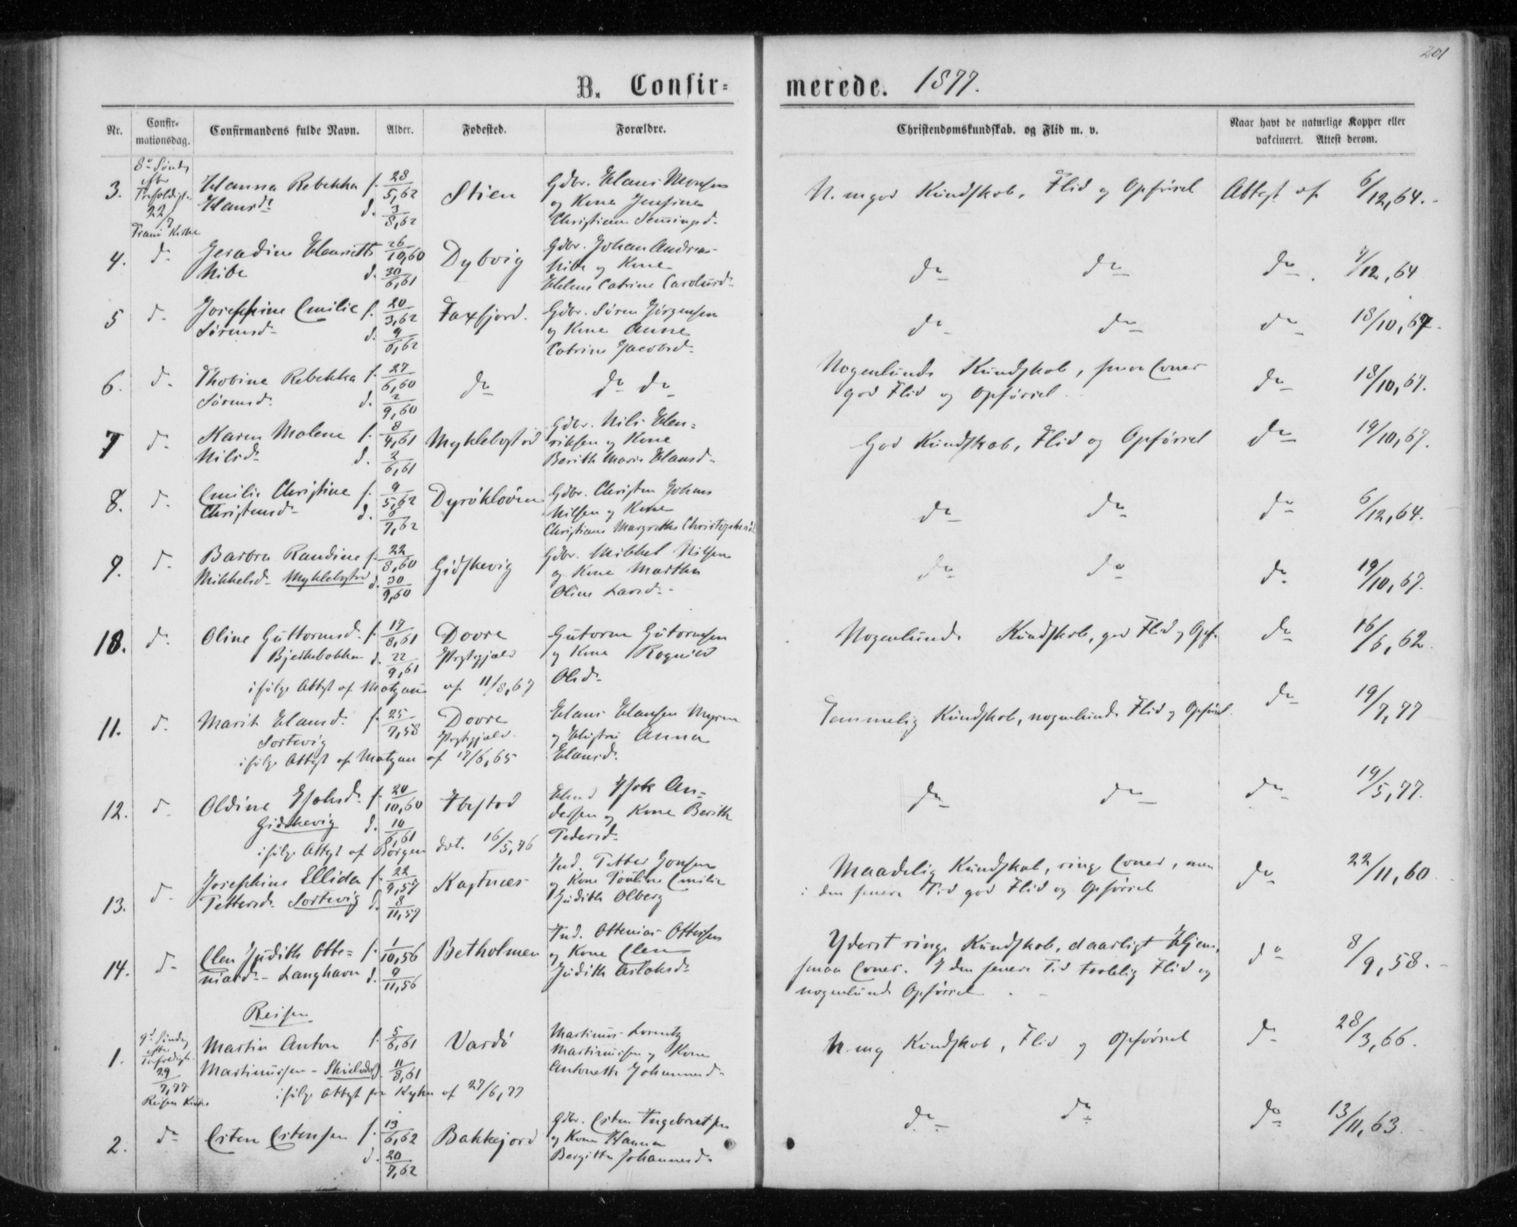 201
B. Confirmerede. 1877.
Nr. Confirmationsdag. Confirmandens fulde Navn. Alder. Fødested. Forældre. Christendomskundskab. og Flid m. v. Naar havt de naturlige Kopper eller vakcineret. Attest derom.
3. 8de Søndg efter Trefoldigh. 22/7 Hanna Rebekka f. 28/5,62 Stien Gdbr. Hans Monsen
Hansdr d. 3/8,62 og Kone Jensine
Christiane
Kundskab, Flid og Opførsel Attest af 6/12,64.
4. do Hanriette f. 26/10,60 Dybvig Gdbr. Johan Andreas
Nibe d. 30/6,61 Nibe og Kone
Helene Catrine Carolusd.
do do do 7/12,64
5 do Josephine Emilie f. 20/3,62 Faxfjord. Gdbr. Søren Jørgensen
Sørensd. d. 9/6,62 og Kone Anne
Catrine Jacobsd.
do do do 18/10,67.
6. do Thobine Rebekka f. 27/6,60 do do do
Sørensd. d. 2/9,60
Nogenlunde Kundskab, smaa Evner
god Flid og Opførsel do 18/10,67.
7 do Karen Malene f. 8/4,61 Myklebostad Gdbr. Nils Hen=
Nilsd. d. 2/6,61 riksen og Kone
Berith Marie Hansd.
God Kundskab, Flid og Opførsel do 19/10,67.
8. do Emilie Christine f. 9/5,62 Gdbr. Christen Johans
Christensd. d. 6/7,62 Nilsen og Kone
Christiane Margrethe
do do do 6/12,64.
9. do Barbra Randine f. 22/8,60 Gidskevig Gdbr. Mikkel Nilsen
Mikkelsd. Myklebostad d. 30/9,60 og Kone Martha
Oline Larsd.
do do do 19/10,67.
10. do Oline Guttormsd. f. 19/8,61 Dovre Gutorm Gutormsen
Bjerkebakken d. 22/9,61 Prestgjeld og Kone Ragnild
ifølge Attest af af 11/8,67 Olsd.
Nogenlunde Kundskab, god Flid og Opf. do 16/6,62.
11. do Marit Hansd. f. 25/7,58 Dovre Hans Hansen Myren
Sortevig Prestgjeld. og Hustru Anna
ifølge Attest af af 17/6,65 Hansd.
Temmelig Kundskab, nogenlunde Flid og Opførsel do 19/7,77
12. do Oldine f. 20/10,60 Ibestad An=
Gidskevig d. 10/6,61 dersen og Kone Berith
ifølge Attest af dat. 16/5,76 Pedersd.
do do do 19/5,77.
13. do Josephine Ellida f. 22/9,57 Kastnæs Ind. Petter Jonsen
Pettersd. Sortevig d. 8/11,57 og Kone Pauline Emilie
Judith Olberg
Maadelig Kundskab, ringe Evner, men
i den senere Tid god Flid og Opførsel do 22/11,60
14. do Elen Judith Otte= f. 1/10,56 Betholmen Ind. Ottenias Ottesen
niasd. Langhavn d. 9/11,56 og Kone Elen
Judith
Yderst ringe Kundskab, daarligt Hjem,
smaa Evner. I den senere Tid Flid og
nogenlunde Opførsel do 8/9,58.
Reisen
1. 9de Søndg efter Trefoldigh. 29/7,77 Martin Anton f. 5/6,61 Vardø Martinus Lorentz
Martinussen d. 11/8,61 Martinussen og Kone
Reisen Kirke ifølge Attest fra af 27/6,77 Antonette Johannesd.
Kundskab, Flid og Opførsel do 28/3,66.
2. do Esten Estensen f. 13/6,62 Bakkejord Gdbr. Esten Ingebretsen
d. 20/7,62 og Kone Hanna
Bergitte Johannesd.
do do do 13/11,63.